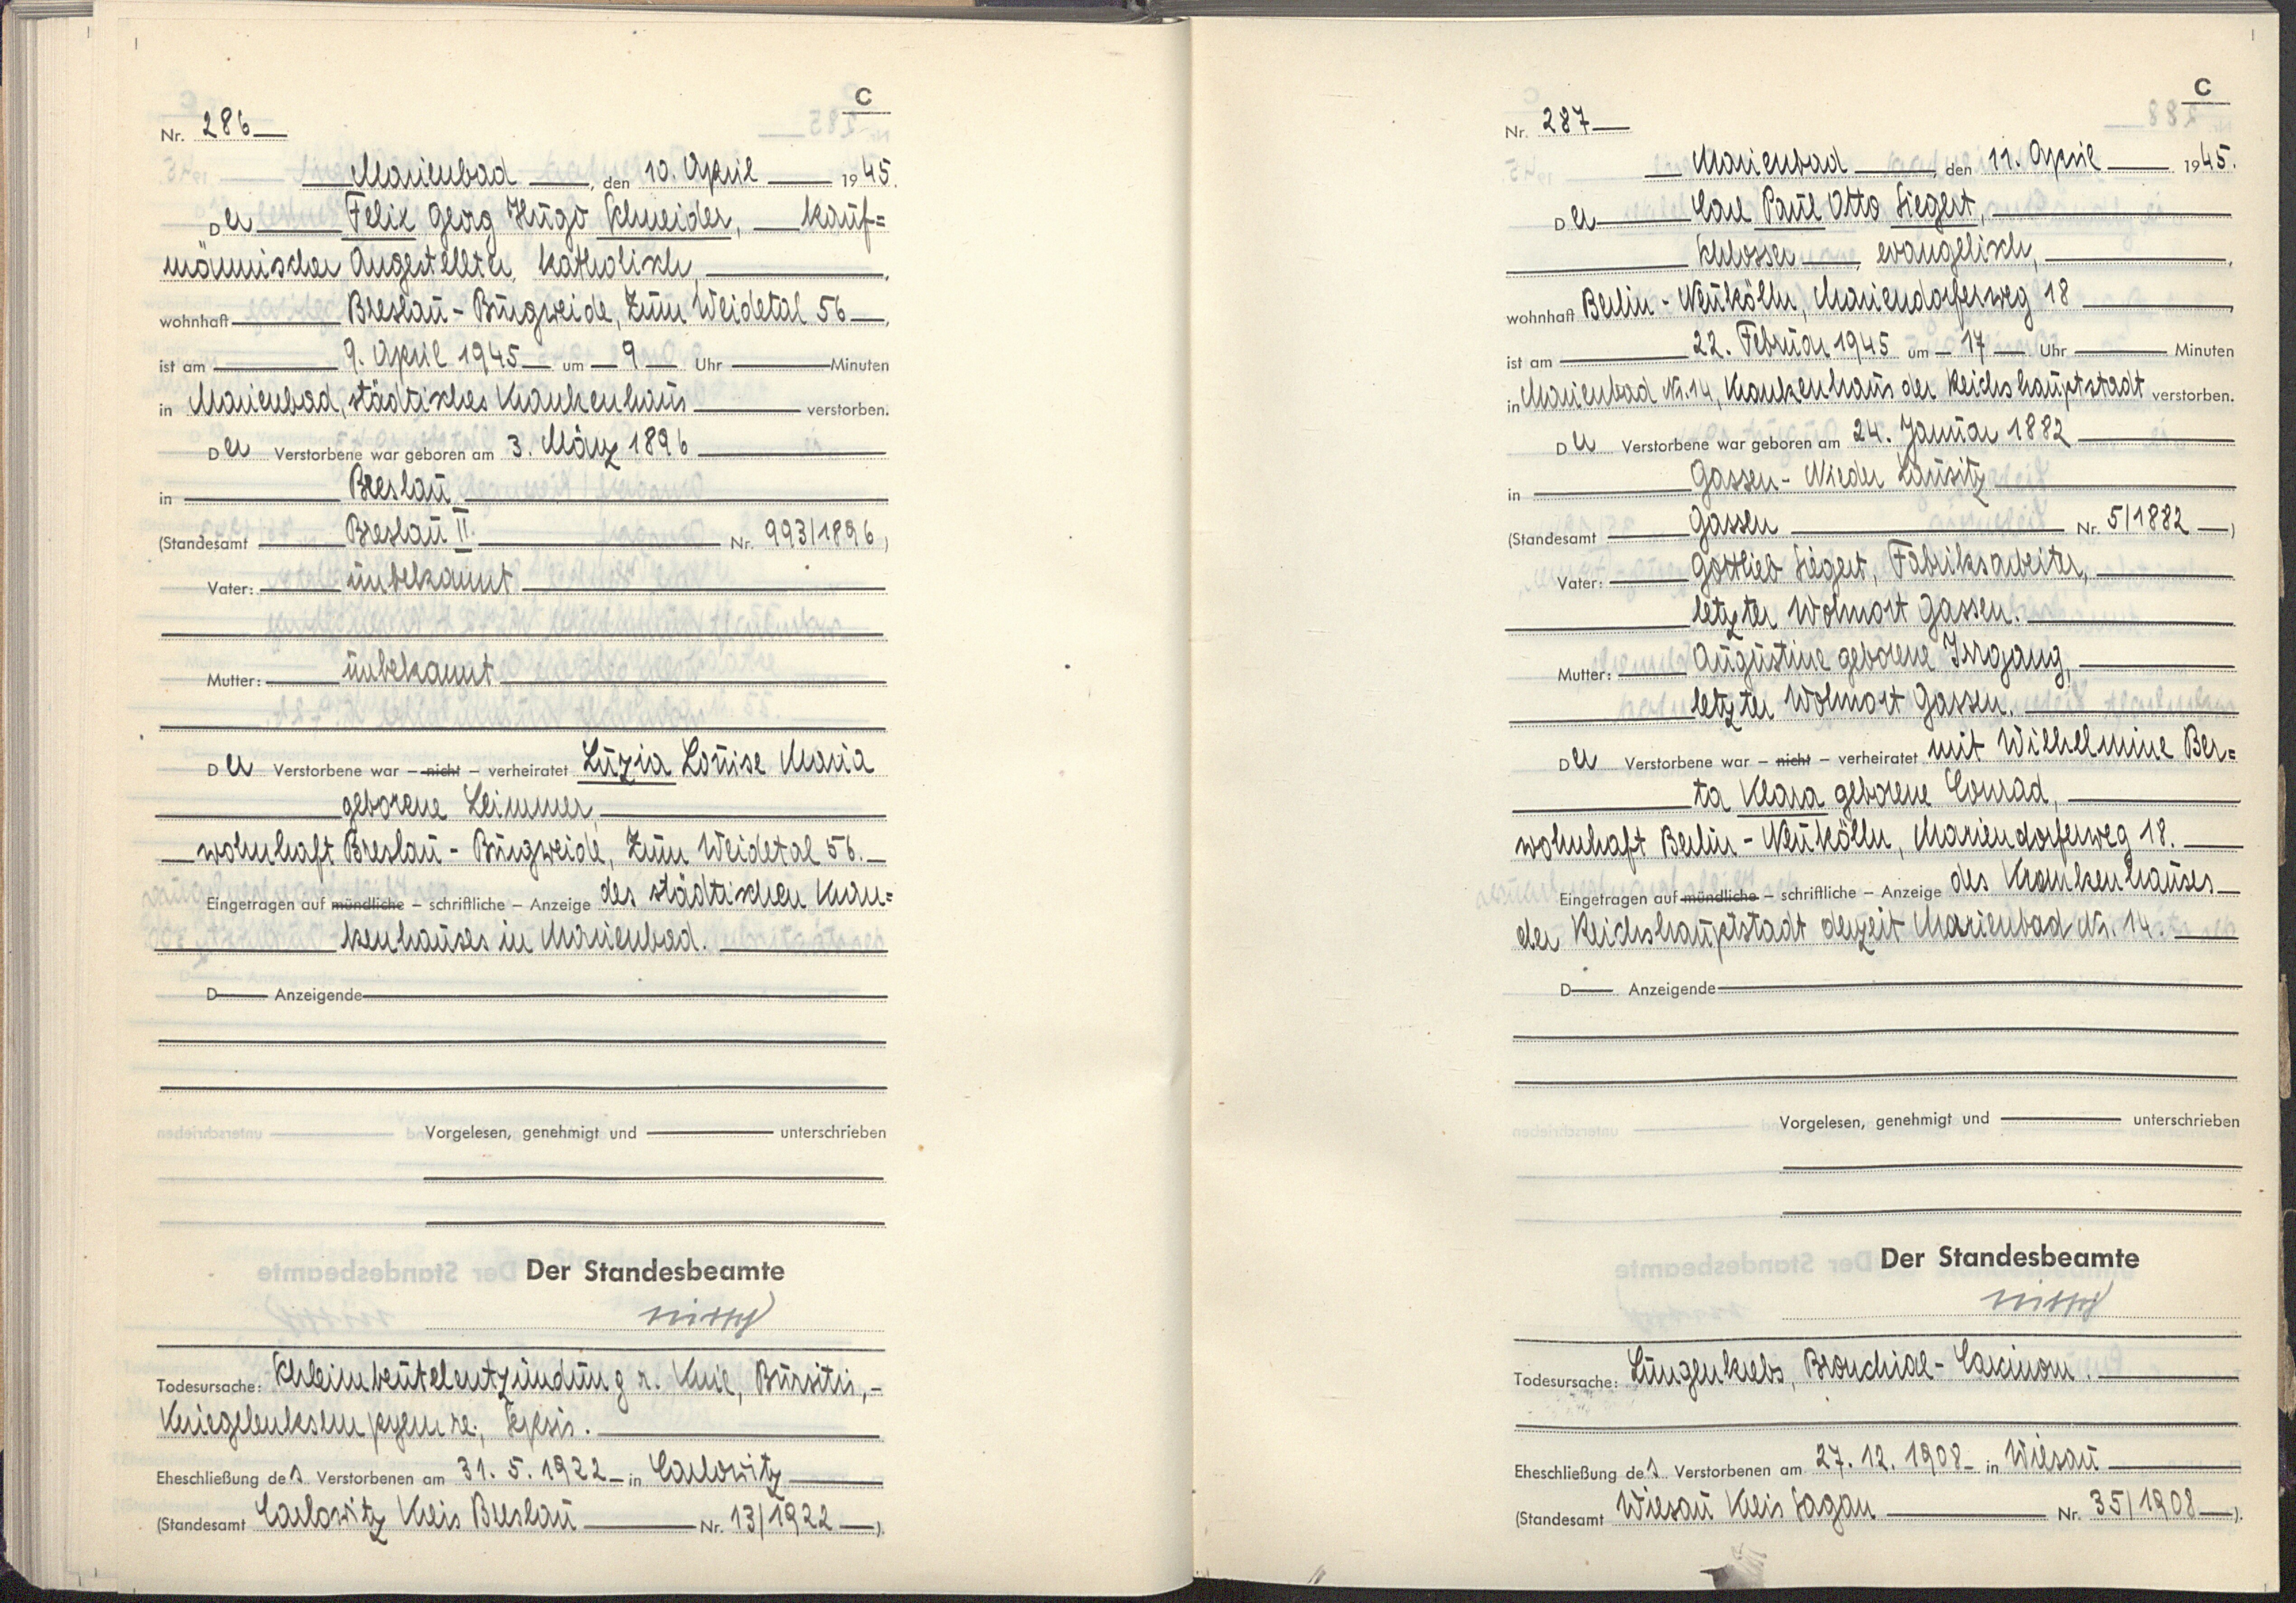 C
Nr. 286
Marienbad, den 10. April 1945.
Der Felix Georg Hugo Schneider, kauf=
männischer Angestellter, katholisch,
wohnhaft Breslau - Burgweide, Zum Weidetal 56,
ist am 9. April 1945 um 9 Uhr Minuten
in Marienbad, städtisches Krankenhaus verstorben.
Der Verstorbene war geboren am 3. März 1896
in Breslau
(Standesamt Breslau II. Nr. 993/1896)
Vater: unbekannt
Mutter: unbekannt
Der Verstorbene war – nicht – verheiratet Luzia Louise Maria
geborene Leimmer,
wohnhaft Breslau - Burgweide, Zum Weidetal 56.
Eingetragen auf mündliche – schriftliche – Anzeige des städtischen Kran=
kenhauses in Marienbad.
D Anzeigende
Vorgelesen, genehmigt und unterschrieben
Der Standesbeamte
Todesursache: Schleimbeutelentzündung r. Knie, Bursitis,-
Kniegelenksempyem re., Sepsis.
Eheschließung des Verstorbenen am 31. 5. 1922 in Carlowitz
(Standesamt Carlowitz Kreis Breslau Nr. 13/1922).
C
Nr. 287
Marienbad, den 11. April 1945.
Der Carl Paul Otto Siegert,
Schlosser, evangelisch,
wohnhaft Berlin - Neukölln, Mariendorferweg 18
ist am 22. Februar 1945 um 17 Uhr Minuten
in Marienbad Nr. 14, Krankenhaus der Reichshauptstadt verstorben.
Der Verstorbene war geboren am 24. Januar 1882
in Gassen - Nieder Lausitz
(Standesamt Gassen Nr. 5/1882)
Vater: Gottlieb Siegert, Fabriksarbeiter,
letzter Wohnort Gassen.
Mutter: Augustine geborene Irrgang,
letzter Wohnort Gassen.
Der Verstorbene war – nicht – verheiratet mit Wilhelmine Ber=
ta Klara geborene Conrad,
wohnhaft Berlin - Neukölln, Mariendorferweg 18.
Eingetragen auf mündliche – schriftliche – Anzeige des Krankenhauses
der Reichshauptstadt derzeit Marienbad Nr. 14.
D Anzeigende
Vorgelesen, genehmigt und unterschrieben
Der Standesbeamte
Todesursache: Lungenkrebs, Bronchial - Carcinom.
Eheschließung des Verstorbenen am 27. 12. 1908 in Wiesau
(Standesamt Wiesau Kreis Sagan Nr. 35/1908).